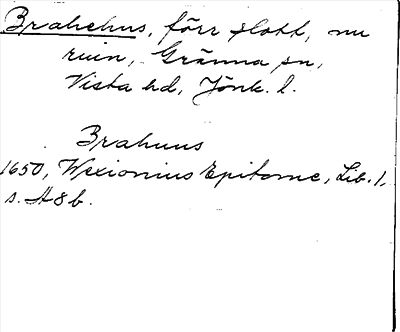 Brahehus, förr slott, nu
ruin, Gränna sn,
Vista hd, Jönk. l.
Brahuus
1650, Wexionius Epitome, Lib. 1,
s. A8b.